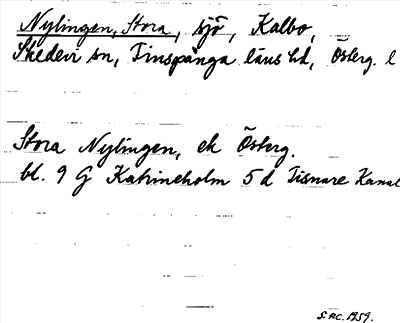 Nylingen, Stora, sjö, Kalbo,
Skedevi sn, Finspånga läns hd, Österg. l
Stora Nylingen, ek Österg.
bl. 9 G Katrineholm 5 d Tisnare Kanal
1959.